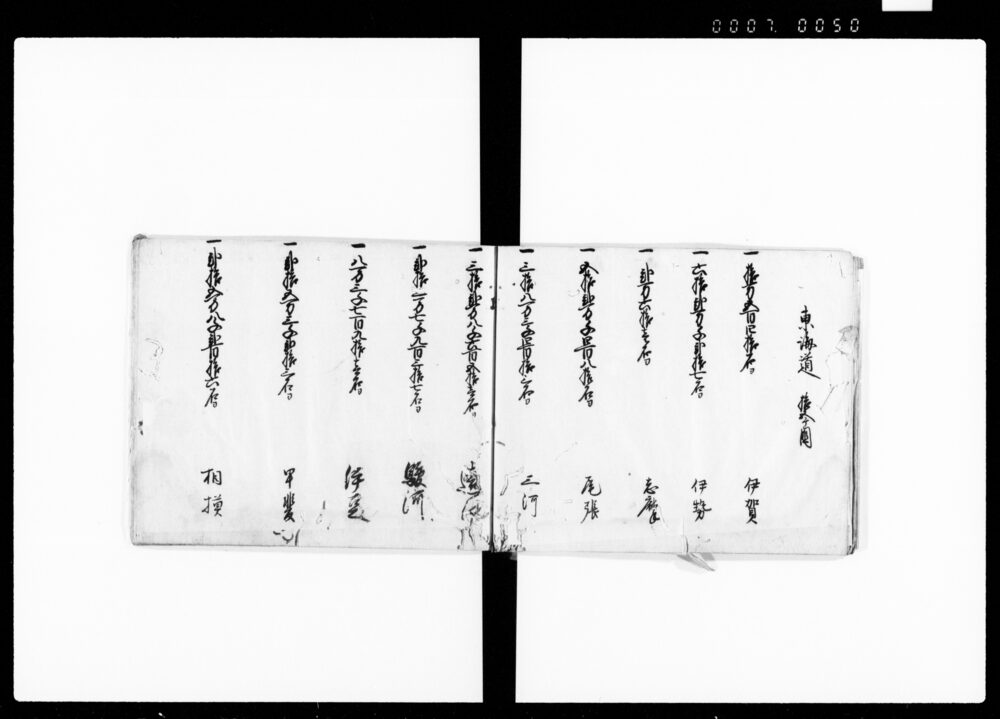 0007. 0050
東海道 拾五ケ国
一 拾万五百四拾石 伊賀
一 六拾弐万千弐拾七石 伊勢
一 弐万六拾壱石 志摩
一 五拾弐万千四百八拾石 尾張
一 三拾八万三千四百拾三石 三河
一 三拾弐万八千六百五拾壱石 遠江
一 弐拾三万七千九百三拾七石 駿河
一 八万三千七百九拾壱石 伊豆
一 弐拾五万三千弐拾三石 甲斐
一 弐拾五万八千弐百拾六石 相摸